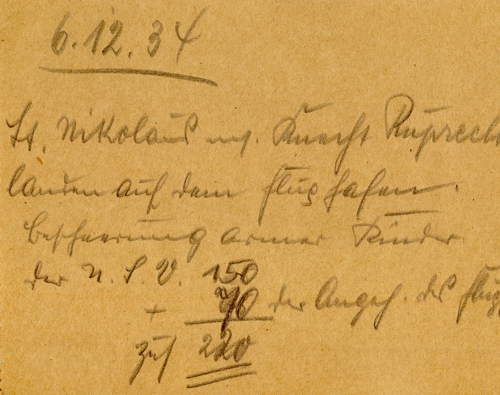 6.12.34
St. Nikolaus u. Knecht Ruprecht
landen auf dem Flughafen.
Bescheerung armer Kinder
der N.S.V. 150
+ 70 der Angeh. des Flug
zus 220